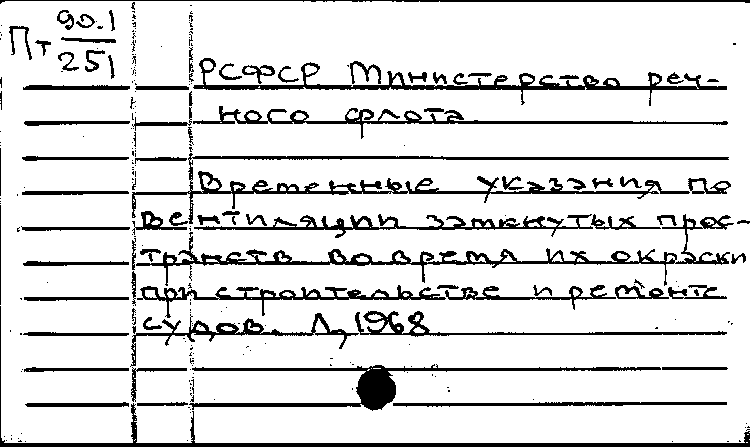 Пт 90.1
251
РСФСР Министерство реч-
ного флота
Временные указания по
вентиляции замкнутых прос-
транств во время их окраски
при строительстве и ремонте
судов. Л, 1968